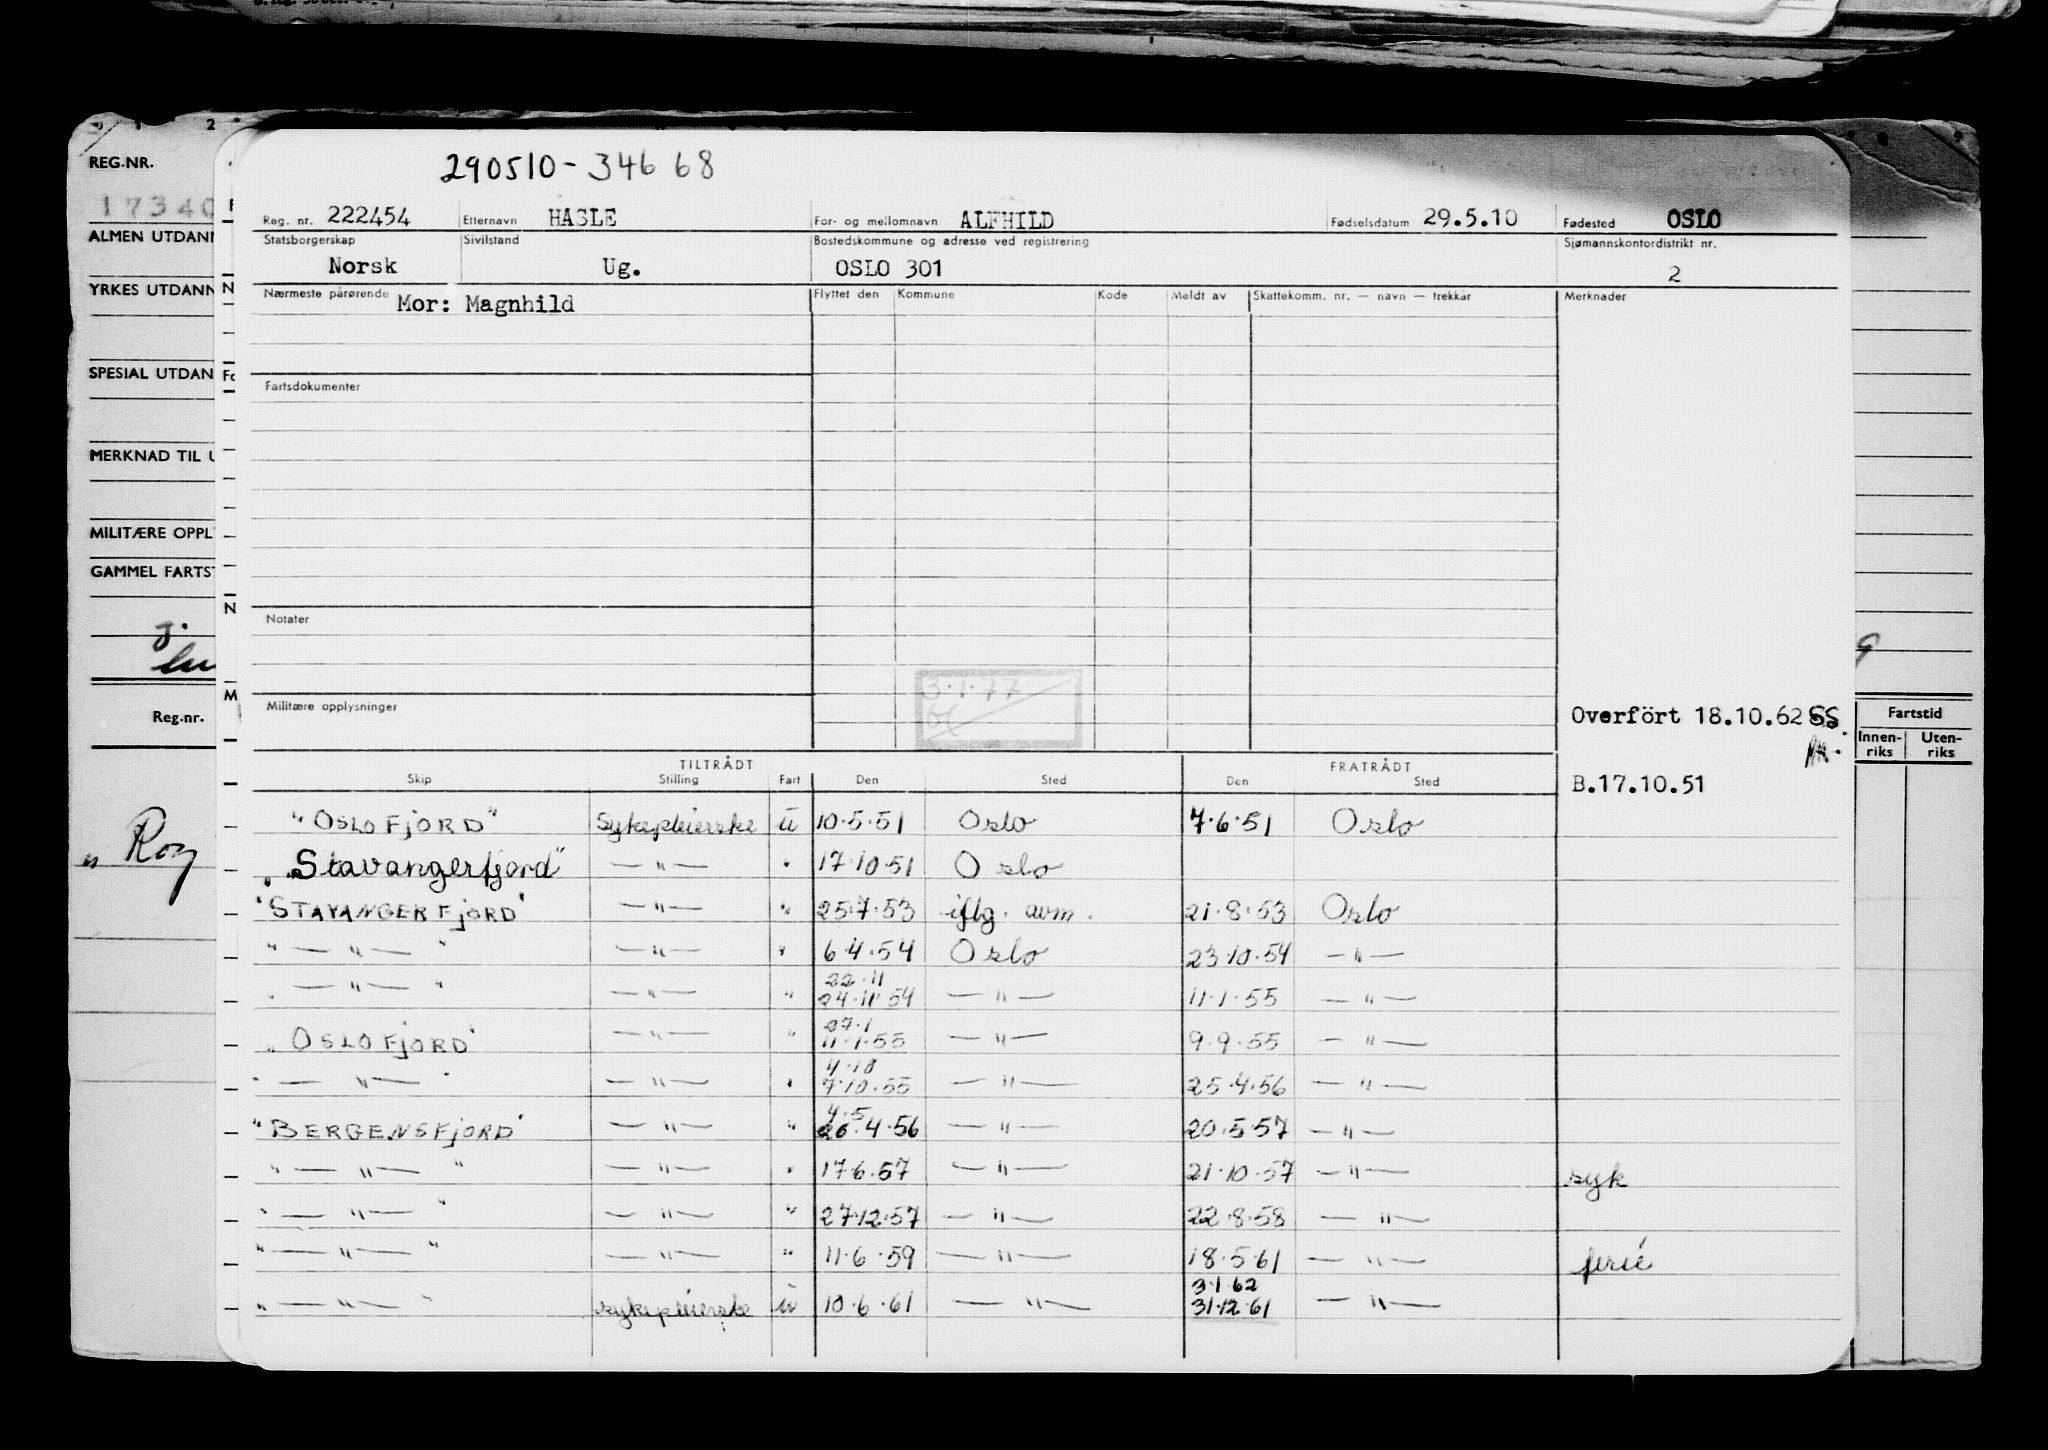 REG.NR.
17340
ALMEN UTDANN
YRKES UTDANN
SPESIAL UTDAN
MERKNAD TIL U
MILITÆRE OPPL
GAMMEL FARTST
Reg.-nr.
„ Roy
290510-34668
Reg. nr. 222454 Etternavn HASLE For- og mellomnavn ALFHILD Fødselsdatum 29.5.10 Fødested OSLO
Statsborgerskap Sivilstand Bostedskommune og adresse ved registrering Sjømannskontordistrikt nr.
Norsk Ug. OSLO 301 2
Nærmeste pårørende Mor: Magnhild Flyttet den Kommune Kode Meldt av Skattekomm. nr. — navn — trekkår Merknader
Fartsdokumenter
Notater
3.1.77
Militære opplysninger
Overfört 18.10.62 SS
B.17.10.51
Fartstid
Innen-riks Uten-riks
TILTRÅDT FRATRÅDT
Skip Stilling Fart Den Sted Den Sted
"OSLOFJORD" Sykepleierske u 10.5.51 Oslo 7.6.51 Oslo
"Stavangerfjord" —"— " 17.10.51 Oslo
"STAVANGERFJORD" —"— " 25.7.53 iflg. avm. 21.8.53 Oslo
" —"— " —"— " 6.4.54 Oslo 23.10.54 —"—
22.11
" —"— " —"— " 24.11.54 —"— 11.1.55 —"—
27.1
"OSLOFJORD" —"— " 11.1.55 —"— 9.9.55 —"—
4.10
" —"— " —"— " 7.10.55 —"— 25.4.56 —"—
4.5
"BERGENSFJORD" —"— " 26.4.56 —"— 20.5.57 —"—
" —"— " —"— " 17.6.57 —"— 21.10.57 —"— syk
" —"— " —"— " 27.12.57 —"— 22.8.58 —"—
" —"— " —"— " 11.6.59 —"— 18.5.61 —"— ferie
3.1.62
" —"— " sykepleierske u 10.6.61 —"— 31.12.61 —"—